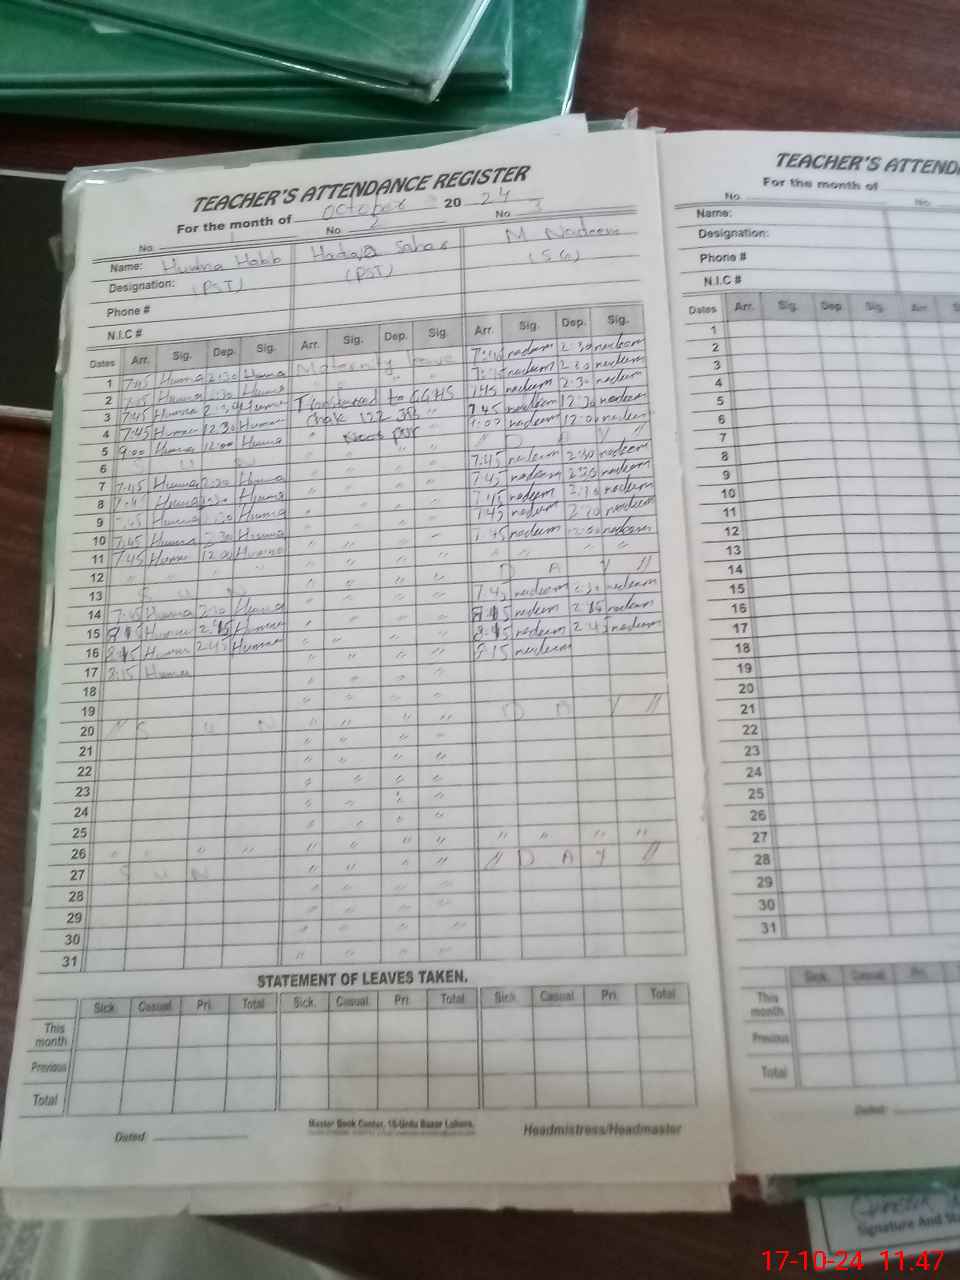 TEACHER'S ATTENDANCE REGISTER
For the month of October 2024
No. 1 No. 2 No. 3
Name: Huma Habib M Nadeem
Designation: (PST) (PST) (SG)
Phone #
N.I.C #
Dates Arr. Sig. Dep. Sig. Arr. Sig. Dep. Sig. Arr. Sig. Dep. Sig.
1 7:45 Huma 2:30 Huma Maternity leave nadeem 2:30 nadeem
2 Huma Huma nadeem 2:30 nadeem
3 7:45 Huma Huma to GGHS nadeem 2:30 nadeem
4 7:45 Huma 12:30 Huma Chak 122 7:45 nadeem 12:30 nadeem
5 9:00 Huma 12:00 Huma nadeem 12:00 nadeem
6 S U N " " " " // D A Y //
7 7:45 Huma 2:30 Huma " " " " 7:45 nadeem 2:30 nadeem
8 Huma Huma " " " " 7:45 nadeem 2:30 nadeem
9 7:45 Huma Huma " " " " 7:45 nadeem 2:30 nadeem
10 7:45 Huma 2:30 Huma " " " " nadeem nadeem
11 7:45 Huma 12:00 Huma " " " " nadeem nadeem
12 " " " " " " " " " " " "
13 S U N " " " " D A Y //
14 7:45 Huma 2:30 Huma " " " " 7:45 nadeem 2:30 nadeem
15 Huma Huma " " " " nadeem nadeem
16 8:45 Huma 2:45 Huma " " " " 8:45 nadeem 2:45 nadeem
17 8:15 Huma " " " " 8:15 nadeem
18 " " " "
19 " " " "
20 // S U N " " " " D A Y //
21 " " " "
22 " " " "
23 " " " "
24 " " " "
25 " " " "
26 " " " " " " " " " " " "
27 S U N " " " " // D A Y //
28 " " " "
29 " " " "
30 " " " "
31 " " " "
STATEMENT OF LEAVES TAKEN.
Sick. Casual. Pri. Total Sick. Casual. Pri. Total Sick. Casual. Pri. Total
This month
Previous
Total
Master Book Center, 18-Urdu Bazar Lahore.
Dated: Headmistress/Headmaster
TEACHER'S ATTEND
For the month of
No. No.
Name:
Designation:
Phone #
N.I.C #
Dates Arr. Sig. Dep. Sig. Arr. S
1
2
3
4
5
6
7
8
9
10
11
12
13
14
15
16
17
18
19
20
21
22
23
24
25
26
27
28
29
30
31
Sick. Casual. Pri. Total
This month
Previous
Total
Dated:
Signature And
17-10-24 11.47